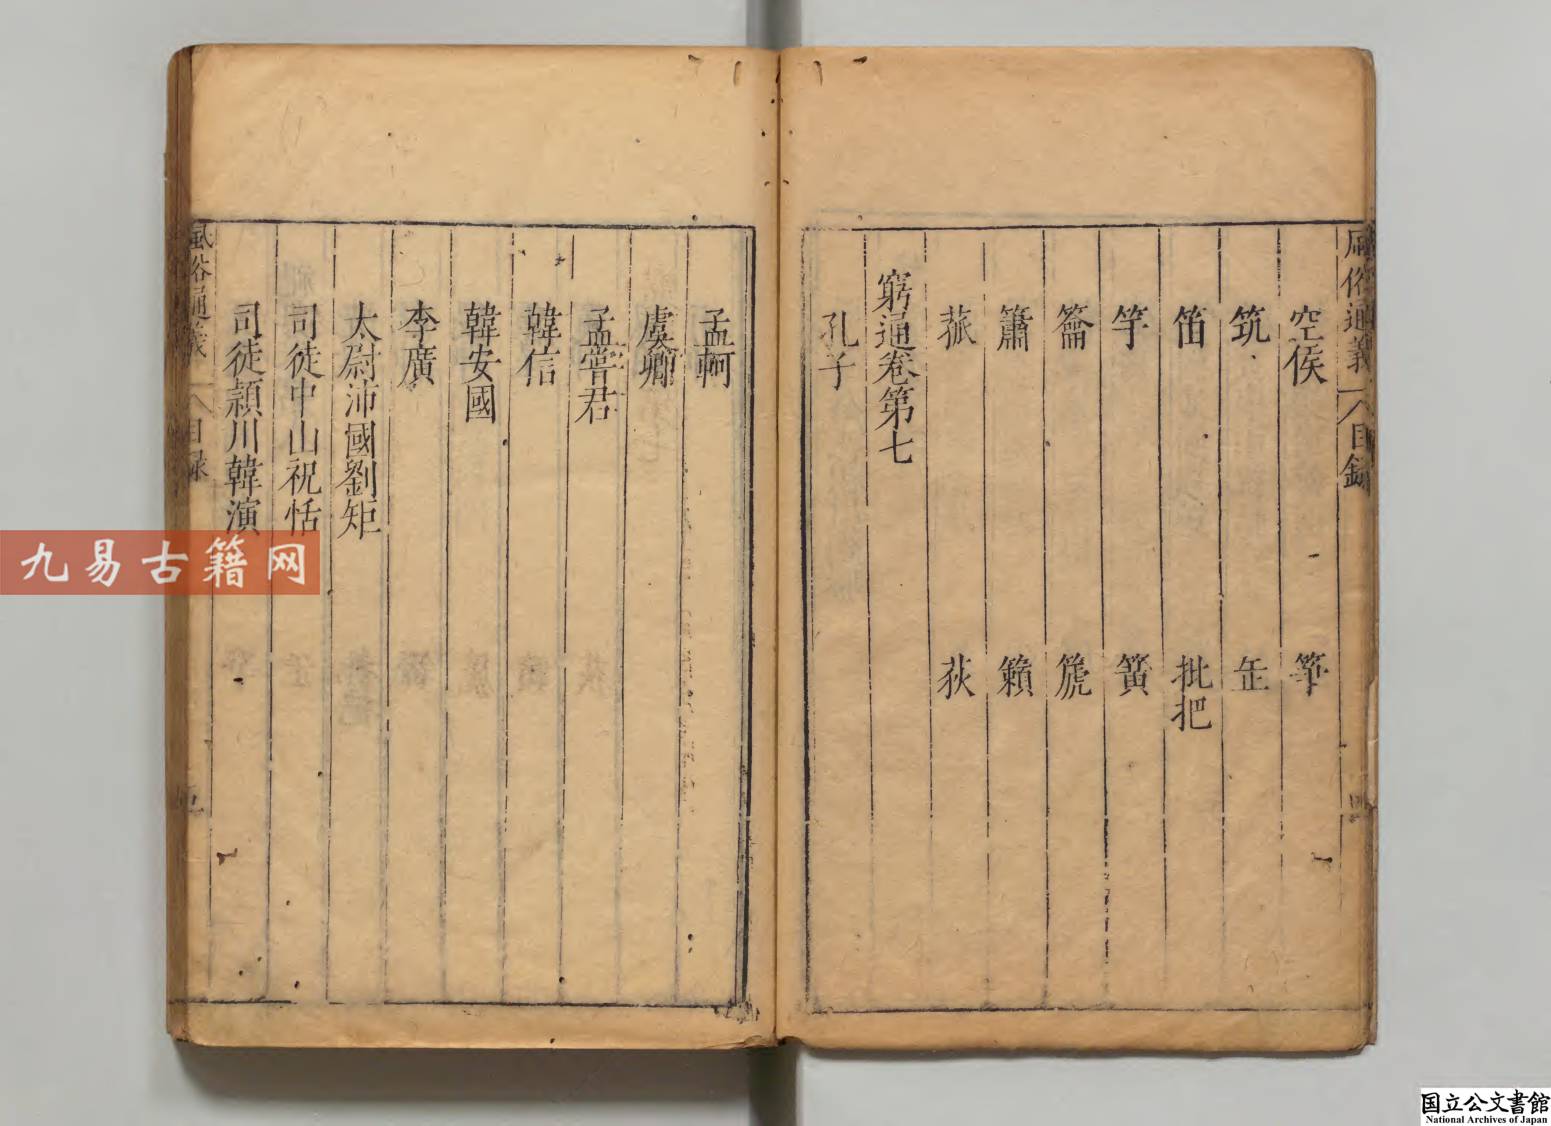 風俗通義 目錄 四
空侯 筝
筑 缶
笛 批把
竽 簧
籥 箎
簫 籟
菰 荻
窮通卷第七
孔子
孟軻
虞卿
孟嘗君
韓信
韓安國
李廣
太尉沛國劉矩
司徒中山祝恬
司徒穎川韓演
風俗通義 目錄 五
九易古籍网
国立公文書館
National Archives of Japan